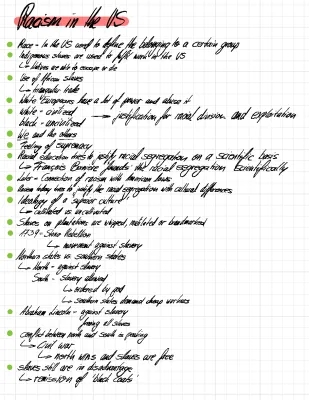 Racism in the US
Race - In the US used to define the belonging to a certain group
Indigenous slaves are used to fulfil work in the US
↳ Natives are able to escape or die
Use of African slaves
↳ triangular trade
White Europeans have a lot of power and abuse it
White - civilized
black - uncivilized → justification for racial division and exploitation
We and the others
Feeling of supremacy
Racial education tries to justify racial segregation on a scientific basis
↳ François Bernier founds the racial segregation scientifically
Later - Connection of racism with American
Racism today tries to justify the racial segregation with cultural differences
Ideology of a "superior culture"
↳ cultivated vs uncultivated
Slaves on plantations are whipped, mutilated or brandmarked
1739 - Stono Rebellion
↳ movement against slavery
Northern states vs southern states
↳ North - against slavery
South - slavery allowed
↳ ordered by god
↳ southern states demand cheap workers
Abraham Lincoln - against slavery
freeing all slaves
conflict between north and south is growing
↳ Civil war
↳ north wins and slaves are free
slaves still are in disadvantage
↳ remission of "black codes"